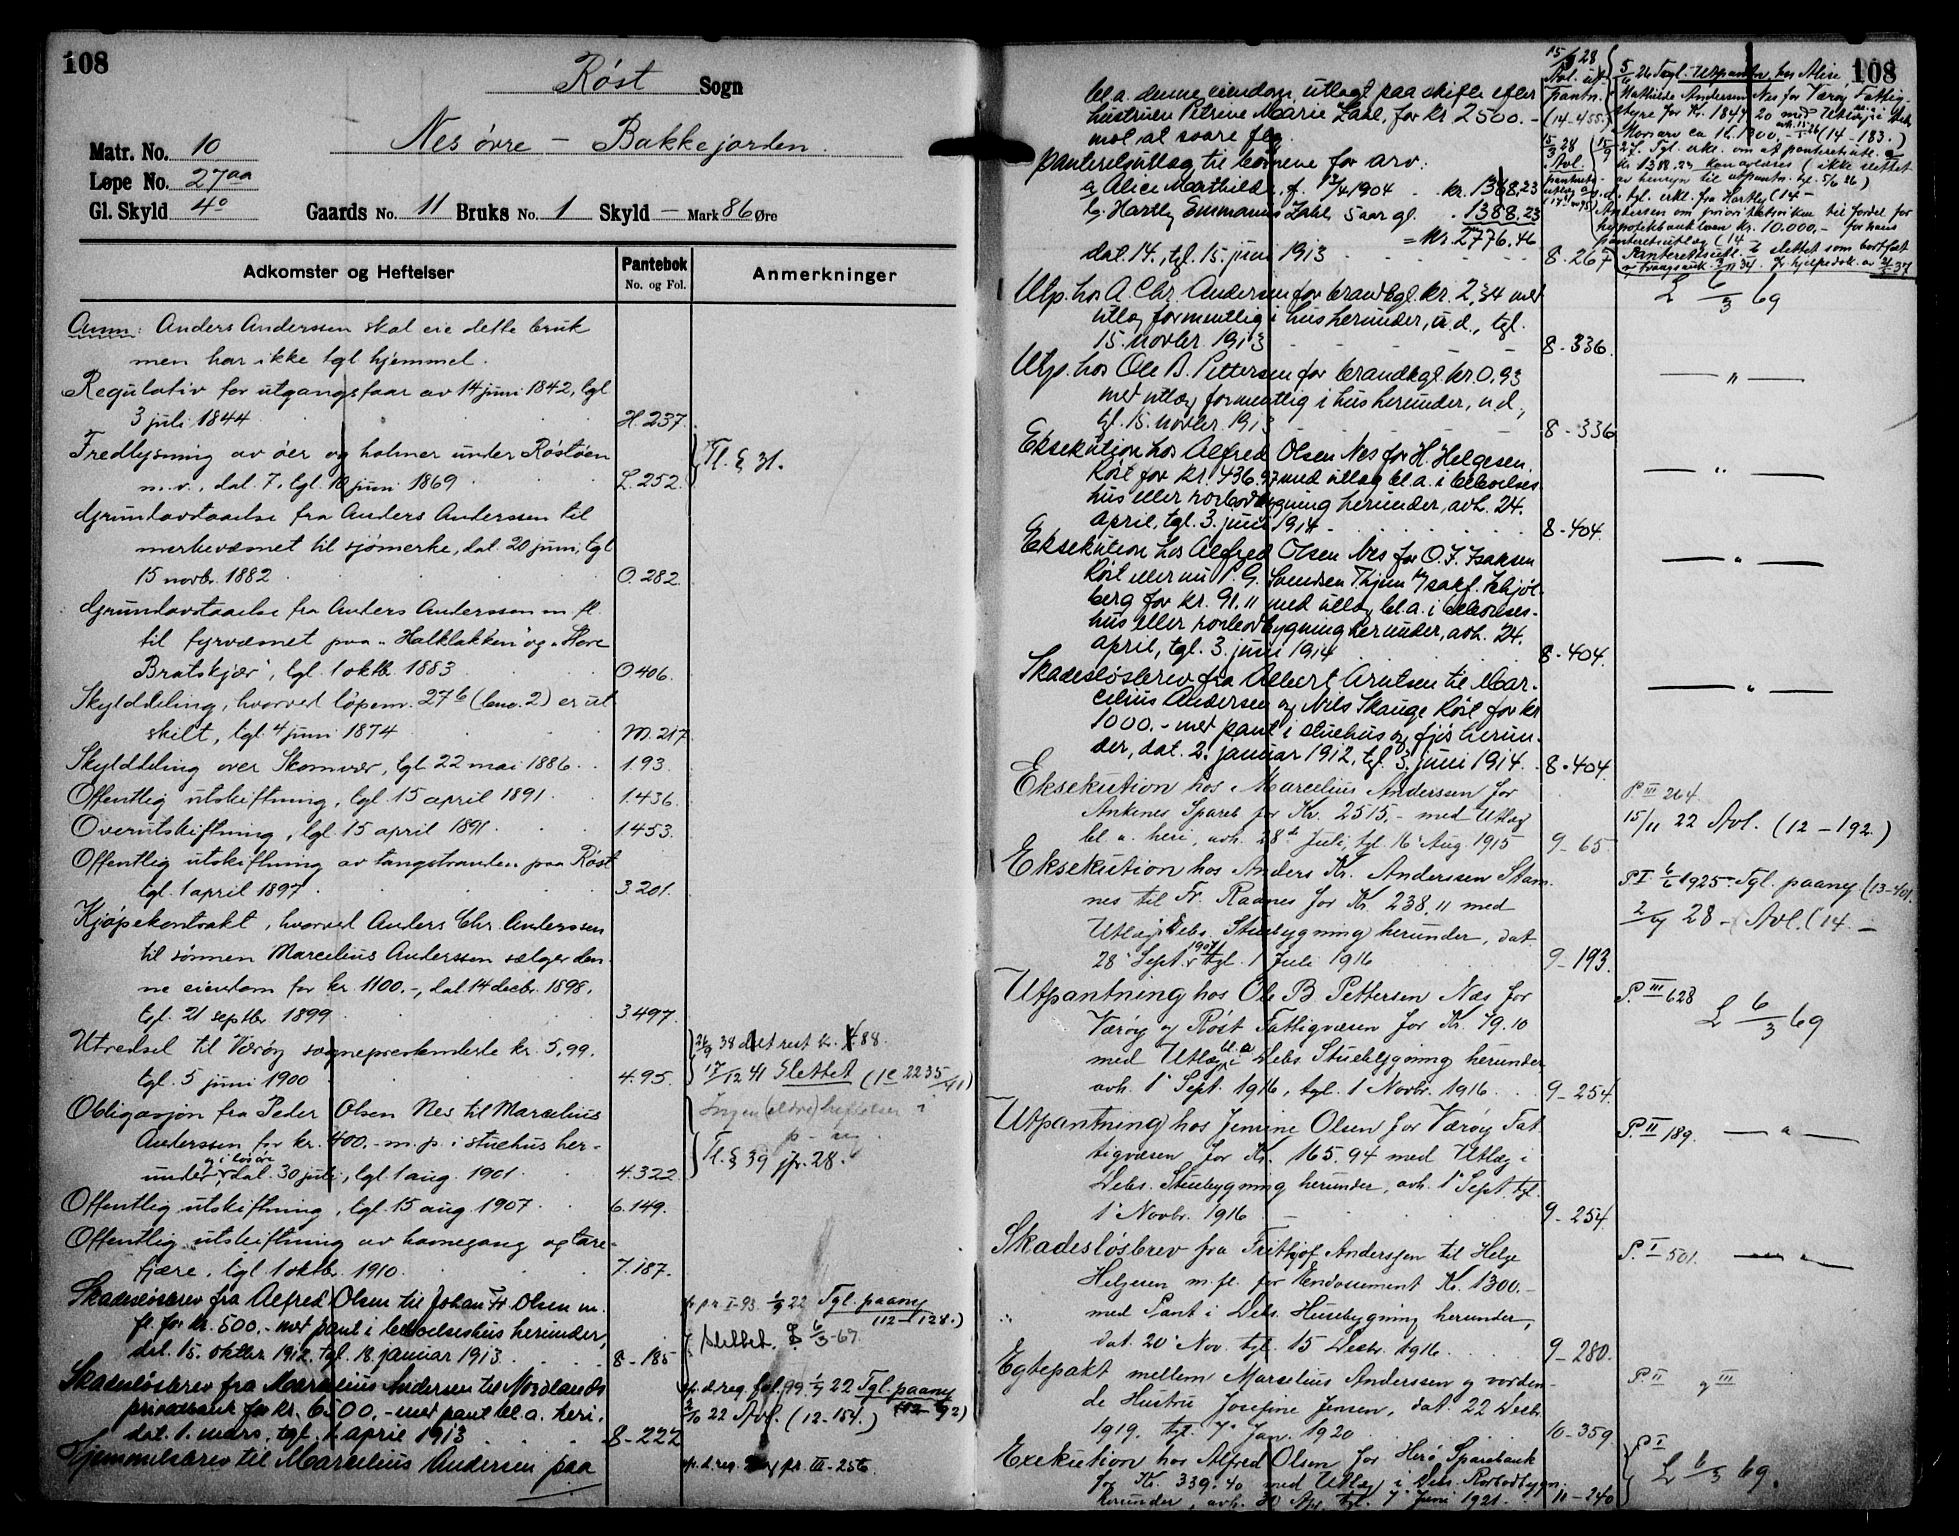 108
Røst Sogn
Nes øvre – Bakkejorden.
Matr. No. 10
Løpe No. 27aa
Gl. Skyld 4°
Gaards No. 11 Bruks No. 1 Skyld – Mark 86 Øre
Adkomster og Heftelser
Pantebok
No. og Fol.
Anmerkninger
Anm: Anders Anderssen skal eie dette bruk
men har ikke tgl hjemmel.
Regulativ for utgangsfaar av 14 juni 1842, tgl
3 juli 1844 H. 237.
Fredlysning av øer og holmer under Røstøen
m.v., dat. 7, tgl. 10 juni 1869 L. 252. Tl. § 31.
Grundavstaaelse fra Anders Anderssen til
merkevæsnet til sjømerke, dat. 20 juni, tgl
15 novbr. 1882 O. 282.
Grundavstaaelse fra Anders Anderssen m. fl.
til fyrvæsnet paa "Halklakken" og "Store
Bratskjær", tgl. 1 oktb. 1883 O. 406.
Skylddeling, hvorved løpenr. 27b (bno. 2) er ut
skilt, tgl. 4 juni 1874 M. 217
Skylddeling over Skomvær, tgl. 22 mai 1886 1.93.
Offentlig utskiftning, tgl. 15 april 1891 1.436.
Overutskiftning, tgl. 15 april 1891 1.453.
Offentlig utskiftning av tangstranden paa Røst
tgl. 1 april 1897 3.201.
Kjøpekontrakt, hvorved Anders Chr. Anderssen
til sønnen Marcelius Anderssen sælger den-
ne eiendom for kr. 1100.-, dat. 14 decbr. 1898,
tgl. 21 septbr. 1899 3.497.
Utredsel til Værøy sogneprestembede kr. 5,99.
tgl. 5 juni 1900 4.95.
17/12 41 Slettet (1c 2235/41)
Obligasjon fra Peder Olsen Nes til Marcelius
Anderssen for kr. 400,- m. p. i stuehus her-
under, og i løsøre dat. 30 juli, tgl. 1 aug. 1901 4.322
Ingen (eldre) heftelser i
Tl. § 39 jfr. 28.
Offentlig utskiftning, tgl. 15 aug 1907 6.149.
Offentlig utskiftning av havnegang og tare-
fjære, tgl. 1 oktbr. 1910 7.187.
Skadesløsbrev fra Alfred Olsen til Johan Fr. Olsen m.
fl. for kr. 500.- med pant i beboelseshus herunder,
dat. 15. oktbr. 1912, tgl. 18. januar 1913 8-185
Tgl. paany
(12-128.)
slettet. L 6/3-69.
Skadesløsbrev fra Marcelius Andersen til Nordlands
privatbank for kr. 6500,- med pant bl. a. heri,
dat. 1. mars, tgl. 1. april 1913 8-222
22 Tgl. paany
22 Avl. (12-154.)
Hjemmelsbrev til Marcelius Andersen paa
108
bl. a. denne eiendom, utlagt paa skifte efter
hustruen Petrine Marie Zahl, for kr 2500.-
mot at svare fdg.
panteretsutlag til børnene for arv:
a, Alice Mathilde, f. 12/4 1904 - kr. 1388,23
b, Hartly Emmanuel Zahl, 5 aar gl. 1388,23
= kr. 2776,46
dat. 14., tgl. 15. juni 1913 8-267
Utp. hos A. Chr. Andersen for brandkgl. kr. 2,34 med
utlæg formentlig i hus herunder, u.d., tgl.
15. novbr. 1913 8-336.
L 6/3 69
Utp. hos Ole B. Pettersen for brandkgl. kr. 0,93
med utlæg formentlig i hus herunder, u.d.,
tgl. 15. novbr. 1913 8-336
— " —
Eksekution hos Alfred Olsen Nes for H. Helgesen
Røst for kr. 436,97 med utlæg bl. a. i beboelses-
hus eller rorbodbygning herunder, avh. 24.
april, tgl. 3. juni 1914 8-404.
— " —
Eksekution hos Alfred Olsen Nes for O. F. Isaksen
Røst eller nu P. G. Svendsen
berg for kr. 91,11 med utlæg bl. a. i beboelses-
hus eller rorbodbygning herunder, avh. 24.
april, tgl. 3. juni 1914 8-404.
— " —
Skadesløsbrev fra Albert Arntsen til Mar-
celius Andersen og Nils Skauge Røst for kr
1000.- med pant i stuehus og fjøs herun-
der, dat. 2. januar 1912, tgl. 3. juni 1914. 8-404.
— " —
Eksekution hos Marcelius Anderssen for
Ankenes Spareb. for Kr. 2515,- med Utlæg
bl. a. heri, avh. 28de Juli, tgl. 16 Aug. 1915 9-65
P. III 264.
15/11 22 Avl. (12-192.)
Eksekution hos Anders Kr. Anderssen Stam-
nes til Fr. Raanes for Kr. 238,11 med
Utlæg i Debs. Stuebygning herunder, dat
28 Sept. 1907, tgl. 1 Juli 1916 9-193.
1925 Tgl. paany (13-401.
28 - Avl. (14.-
Utpantning hos Ole B. Pettersen Nes for
Værøy og Røst Fattigvæsen for Kr. 79.10
med Utlæg bl. a. i Debs. Stuebygning herunder
avh. 1 Sept. 1916, tgl. 1 Novbr. 1916 9-254.
P. III 628
L 6/3 69
Utpantning hos Jemine Olsen for Værøy Fat
tigvæsen for Kr. 165.94 med Utlæg i
Debs. Stuebygning herunder, avh. 1 Sept. tgl.
1 Novbr. 1916 9-254.
P. II 189. — " —
Skadesløsbrev fra Frithjof Anderssen til Helge
Helgesen m. fl. for Endossement Kr. 1300.-
med Pant i Debs. Husebygning herunder,
dat. 20 Nov. tgl. 15 Decbr. 1916 9-280.
P. I 501. — " —
Egtepakt mellem Marselius Anderssen og vorden-
de Hustru Josefine Jensen, dat. 22 Decbr.
1919, tgl. 7 Jan. 1920 10-359.
P. II og III
Exekution hos Alfred Olsen for Herø Sparebank
for Kr. 339.40 med Utlæg i Debs. Rorbodbygn.
herunder, avh. 30 Apr. tgl. 7 Juni 1921 11-240
P. I
L 6/3 69.